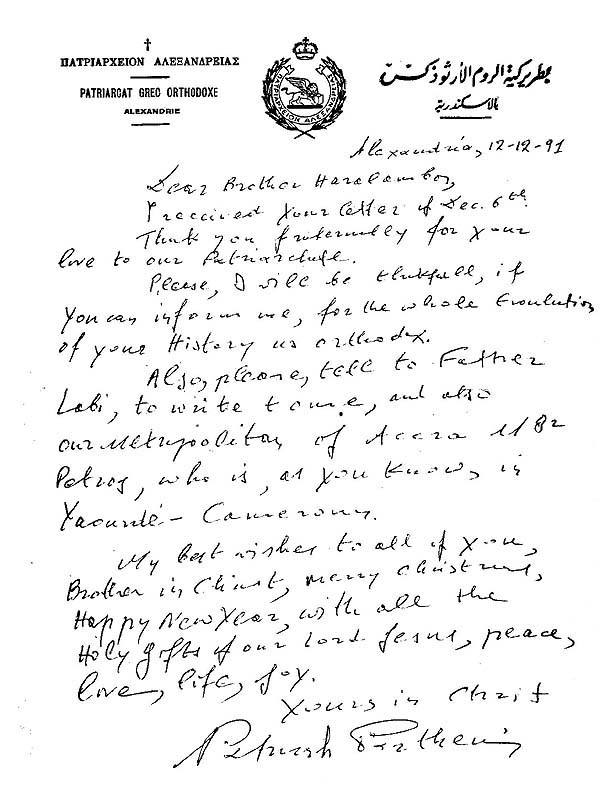 ΠΑΤΡΙΑΡΧΕΙΟΝ ΑΛΕΞΑΝΔΡΕΙΑΣ
PATRIARCAT GREC ORTHODOXE
ALEXANDRIE
ΠΑΤΡΙΑΡΧΕΙΟΝ ΑΛΕΞΑΝΔΡΕΙΑΣ
بطريركية الروم الأرثوذكس
بالاسكندرية
Alexandria, 12-12-91
Dear Brother Haralambos,
I received your letter of Dec. 6th.
Thank you fraternally for your
love to our Patriarchate.
Please, I will be thankfull, if
you can inform me, for the whole Evolution
of your History as orthodox.
Also, please, tell to Father
Labi, to write to me, and also
our Metropolitan of Accra
Petros, who is, as you know, in
Yaoundé - Cameroun.
My best wishes to all of you,
Brother in Christ, merry christmas,
Happy New Year, with all the
Holy gifts of our Lord Jesus, peace,
love, life, joy.
Yours in Christ